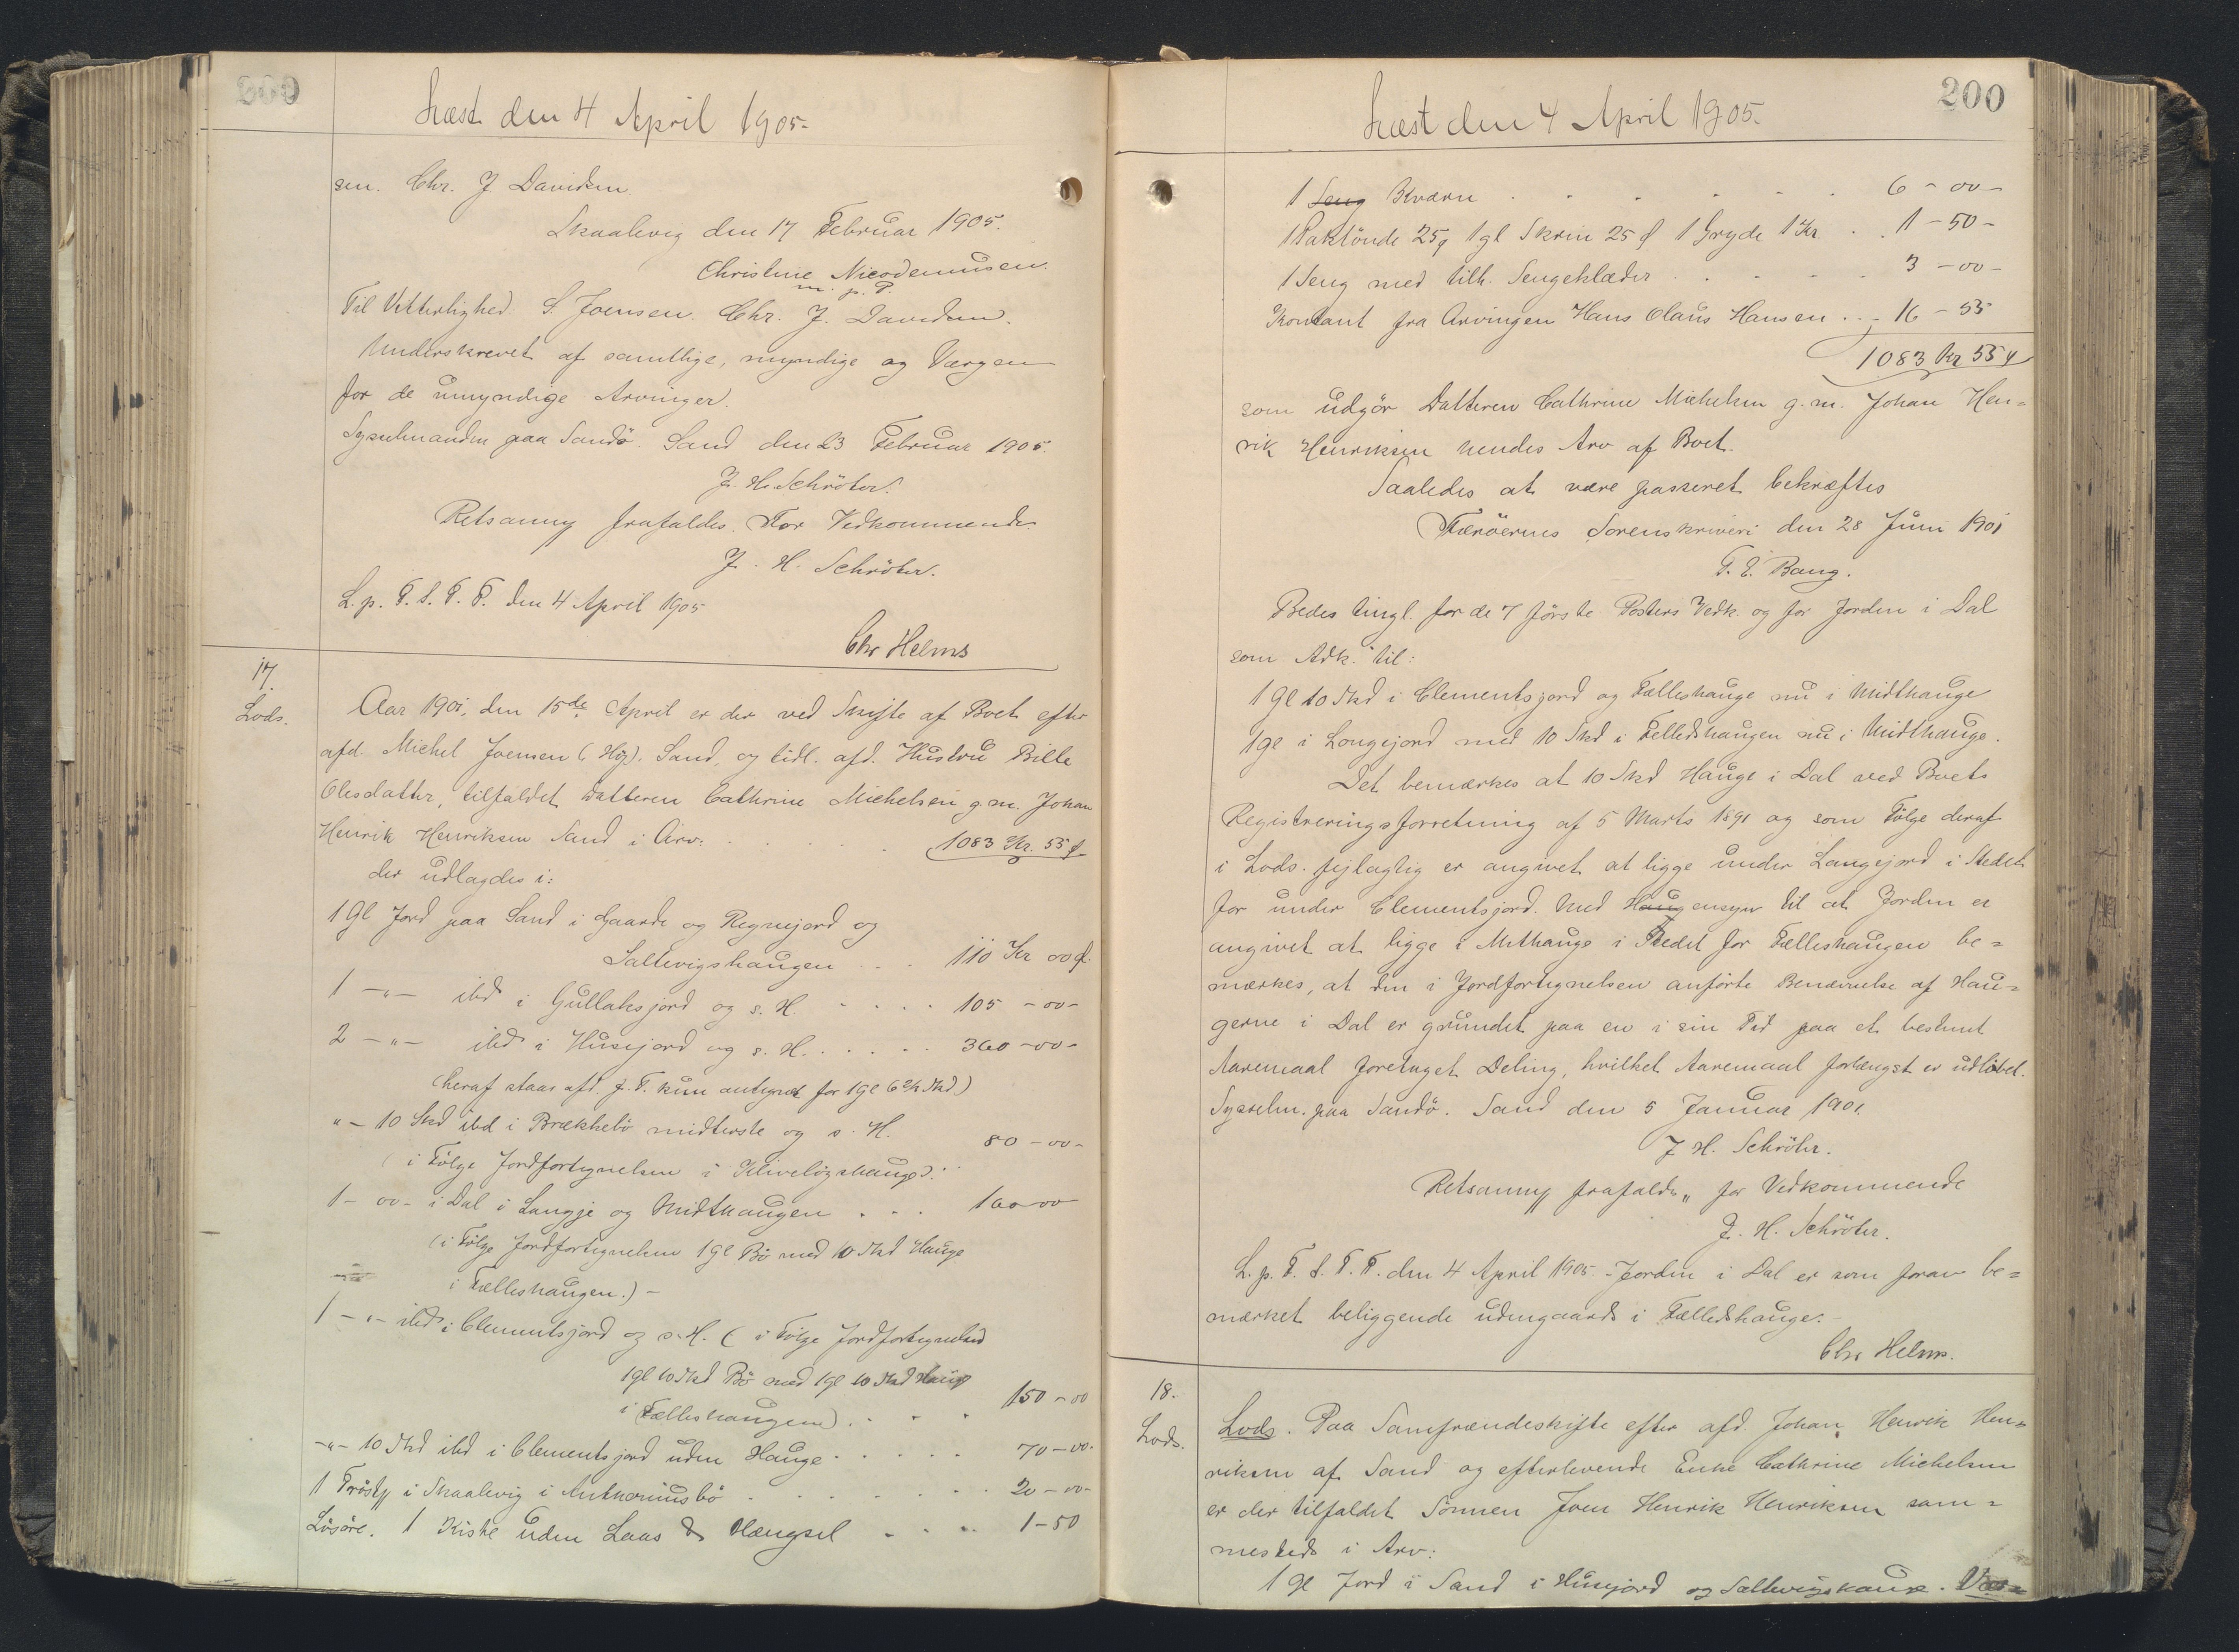 Læst den 4 April 1905.
sen. Chr. J. Davidsen
Skaalevig den 17 Februar 1905.
Christine Nicodemussen.
m. p. P.
Til Vitterlighed S. Joensen. Chr. J. Davidsen.
Underskrevet af samtlige, myndige og Værgen
for de umyndige Arvinger.
Sysselmanden paa Sandö. Sand den 23 Februar 1905.
J. H. Schröter.
Retsanmg frafaldes. For Vedkommende
J. H. Schröter.
L. p. F. S. T. P. den 4 April 1905
Chr Helms
17.
Lods.
Aar 1901, den 15de April er der ved Skifte af Boet efter
afd. Michel Joensen (Höj). Sand, og tidl. afd. Hustru Bille
Olesdatter, tilfaldet Datteren Cathrine Michelsen g. m. Johan
Henrik Henriksen Sand i Arv: 1083 Kr. 55 ø
der udlagdes i:
1 Gl Jord paa Sand i Gaarde og Regnejord og
Saltevigshaugen . . . 110 Kr 00 ø
1 -"- ibd i Gullaksjord og s. H. . . . . 105 - 00 -
2 -"- ibd i Husejord og s. H. . . . . . 360 - 00 -
(heraf staar afd. J. F. kun antegnet for 1 gl 6 2/3 Skd)
" - 10 Skd ibd i Brækkebö midterste og s. H. 80 - 00 -
(i Fölge Jordfortegnelsen i Kliveløgshauge).
1 - 00 - i Dal i Langje og Midthaugen . . . 160 - 00
(i Fölge Jordfortegnelsen 1 gl Bö med 10 Skd Hauge
i Fælleshaugen.) -
1 - " - ibd i Clementsjord og s. H. (i Fölge Jordfortegnelsen
1 gl 10 Skd Bö med 1 gl 10 Skd Hauge
i Fælleshaugen) . . . 150 - 00
-"- 10 Skd ibd i Clementsjord uden Hauge . . . . . 70 - 00 -
1 i Skaalevig i Anthoniusbö . . . . . . 20 - 00 -
Lösöre. 1 Kiste uden Laas & Hængsel . . . 1 - 50
200
Læst den 4 April 1905.
1 Seng Kværn . . . . . . 6 - 00 -
1 Saktönde 25 ø 1 gl Skrin 25 ø 1 Gryde 1 Kr . . 1 - 50 -
1 Seng med tilh. Sengeklæder . . . . . 3 - 00 -
Kontant fra Arvingen Hans Olaus Hansen . . - 16 - 55
1083 Kr 55 ø
som udgör Datteren Cathrine Michelsen g. m. Johan Hen=
rik Henriksen hendes Arv af Boet.
Saaledes at være passeret bekræftes
Færöernes Sorenskriveri den 28 Juni 1901
T. E. Bang.
Bedes tingl. for de 7 förste Posters Vedk. og for Jorden i Dal
som Adk. til:
1 Gl 10 Skd i Clementsjord og Fælleshauge nu i Midthauge
1 gl i Longejord med 10 Skd i Felledshaugen nu i Midthauge.
Det bemærkes at 10 Skd Hauge i Dal ved Boets
Registreringsforretning af 5 Marts 1891 og som Fölge deraf
i Lods. fejlagtig er angivet at ligge under Langejord i Stedet
for under Clementsjord. Med Haug ensyn til at Jorden er
angivet at ligge i Methauge i Stedet for Fælleshaugen be=
mærkes, at den i Jordfortegnelsen anförte Benævnelse af Hau=
gerne i Dal er grundet paa en i sin Tid paa et bestemt
Aaremaal foretaget Deling, hvilket Aaremaal forlængst er udlöbet.
Sysselm. paa Sandö. Sand den 5 Januar 1901.
J. H. Schröter.
Retsanmg frafaldes, for Vedkommende
J. H. Schröter.
L. p. F. S. T. P. den 4 April 1905. - Jorden i Dal er som foran be=
mærket beliggende udengaards i Fælledshauge. -
Chr Helms.
18.
Lods.
Lods. Paa Samfrændeskifte efter afd. Johan Henrik Hen=
riksen af Sand og efterlevende Enke Cathrine Michelsen
er der tilfaldet Sönnen Joen Henrik Henriksen sam=
mesteds i Arv:
1 gl Jord i Sand i Husejord og Saltevigshauge.